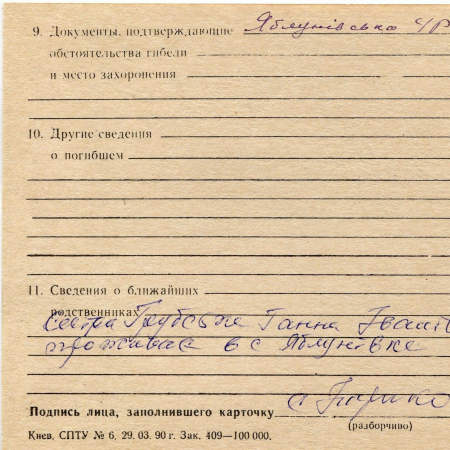 9. Документы, подтверждающие Яблунівська
обстоятельства гибели
и место захоронения
10. Другие сведения
о погибшем
11. Сведения о ближайших
родственниках
Сестра Ганна
проживає в с Яблунівка
Подпись лица, заполнившего карточку
(разборчиво)
Киев, СПТУ № 6, 29. 03. 90 г. Зак. 409—100 000.